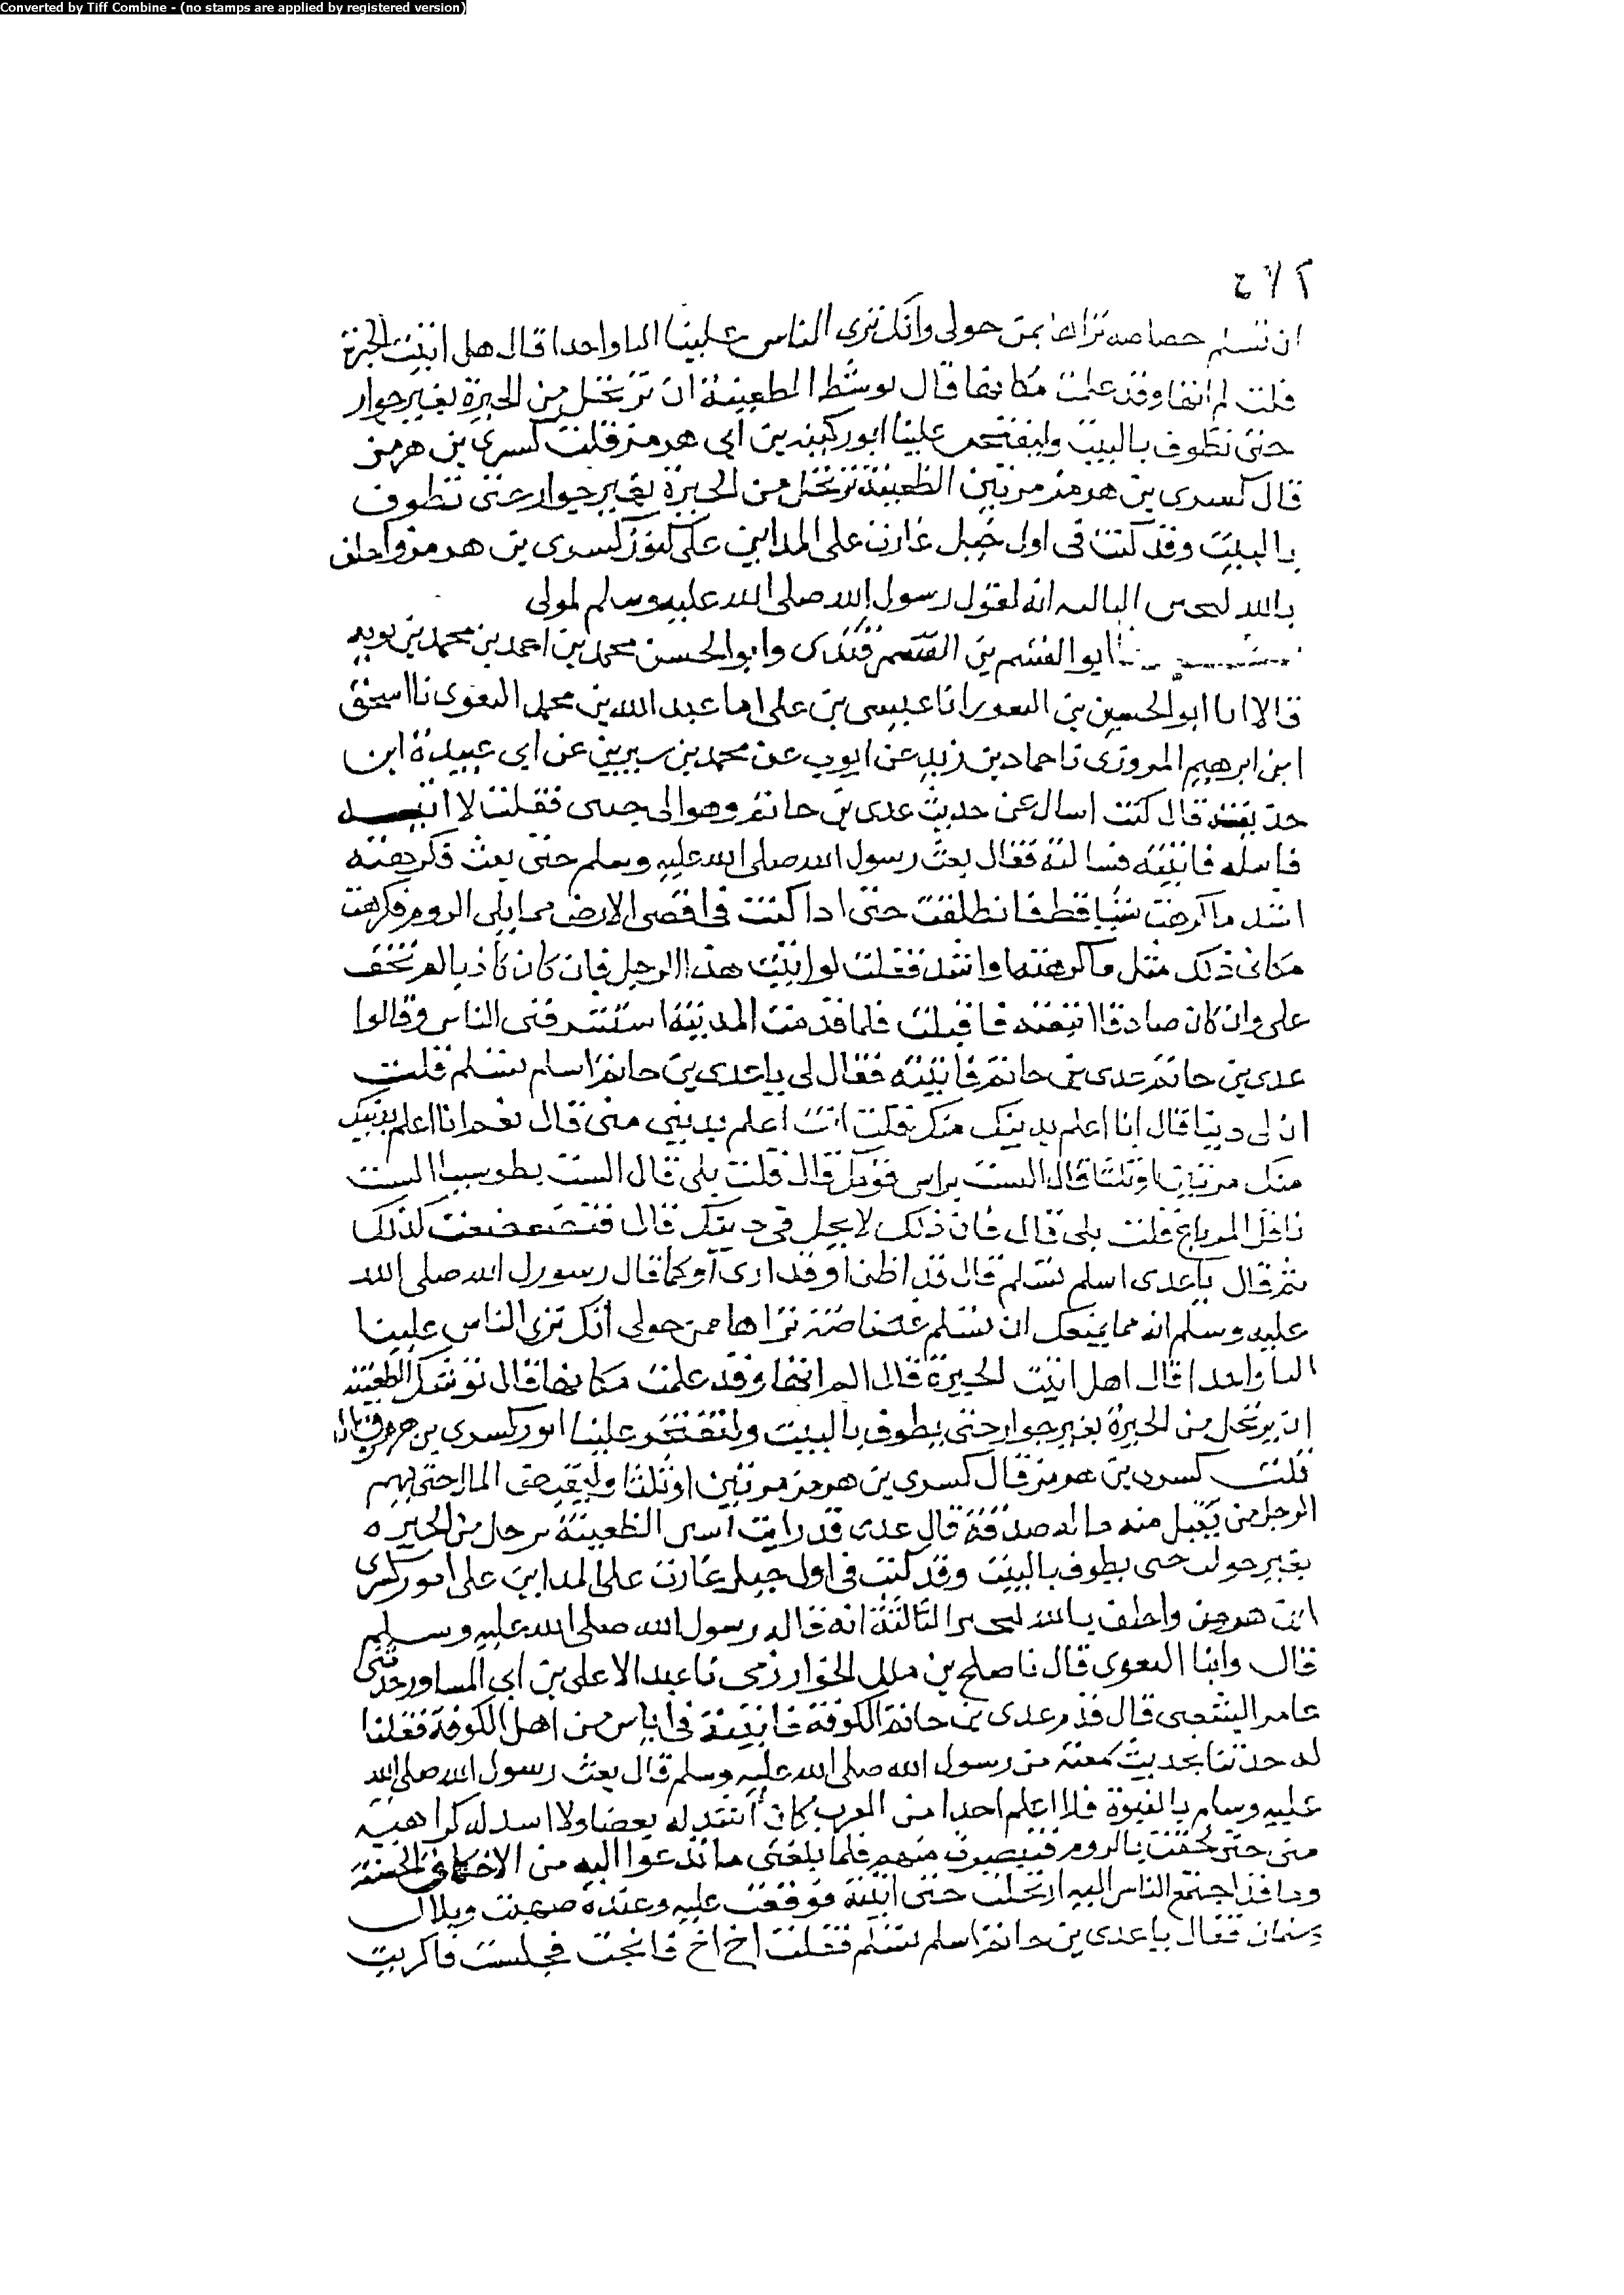 Converted by Tiff Combine - (no stamps are applied by registered version)
ان تسلم خصاصه تراها بمن حولى وانك ترى الناس علينا البا واحدا قال هل اتيت الحيرة
قلت لم اتها وقد علمت مكانها قال يوشك الظعينة ان ترتحل من الحيرة بغير جوار
حتى تطوف بالبيت وليفتحن علينا كسرى بن هرمز
قال كسرى بن هرمز مرتين الظعينة ترتحل من الحيرة بغير جوار حتى تطوف
بالبيت وقد كنت فى اول خيل غارت على المداين على كنوز كسرى بن هرمز واحلف
بالله لتجئ الثالثه انه لقول رسول الله صلى الله عليه وسلم لمولى
ابو القسم بن وابو الحسن محمد بن احمد بن محمد بن
قالا انا ابو الحسين بن النقور انا عيسى بن على انا عبد الله بن محمد البغوى نا اسحق
ابن ابرهيم المروزى نا حماد بن زيد عن ايوب عن محمد بن سيرين عن ابى عبيدة ابن
حذيفة قال كنت اسال عن حديث عدى بن حاتم وهو الى جنبى فقلت لا اتيه
فاسله فاتيته فسالته فقال بعث رسول الله صلى الله عليه وسلم حتى بعث فكرهته
اشد ما كرهت شيا قط فانطلقت حتى اذا كنت فى اقصى الارض مما يلى الروم فكرهت
مكانى ذلك مثل ما كرهته او اشد فقلت لو اتيت هذا الرجل فان كان كاذبا لم يخف
على وان كان صادقا اتبعته فاقبلت فلما قدمت المدينة استشرفنى الناس وقالوا
عدى بن حاتم عدى بن حاتم فاتيته فقال لى يا عدى بن حاتم اسلم تسلم قلت
ان لى دينا قال انا اعلم بدينك منك قلت انت اعلم بدينى منى قال نعم انا اعلم بدينك
منك مرتين او ثلثا قال الست براس قومك قال قلت بلى قال الست الست
تاكل المرباع قلت بلى قال فان ذلك لا يحل فى دينك قال فتضعضعت لذلك
ثم قال يا عدى اسلم تسلم قال قد اظن او قد ارى او كما قال رسول الله صلى الله
عليه وسلم انه مما يمنعك ان تسلم خصاصة تراها ممن حولى انك ترى الناس علينا
البا واحدا قال هل اتيت الحيرة قال لم اتها وقد علمت مكانها قال توشك الظعينه
ان يرتحل من الحيرة بغير جوار حتى يطوف بالبيت ولتفتحن علينا كنوز كسرى بن هرمز قال
قلت كسرى بن هرمز قال كسرى بن هرمز مرتين او ثلثا وليفيض المال حتى يهم
الرجل من يقبل منه ماله صدقة قال عدى قد رايت الظعينة ترحل من الحيره
بغير جوار حتى يطوف بالبيت وقد كنت فى اول خيل غارت على المداين على كنوز كسرى
ابن هرمز واحلف بالله لتجئ الثالثة انه قاله رسول الله صلى الله عليه وسلم
قال وانبا البغوى قال نا صلح بن ملك الخوارزمى نا عبد الاعلى بن ابى المساور حدثنى
عامر الشعبى قال قدم عدى بن حاتم الكوفة فاتيته فى اناس من اهل الكوفة فقلنا
له حدثنا بحديث سمعته من رسول الله صلى الله عليه وسلم قال بعث رسول الله صلى الله
عليه وسلم بالنبوة فلا اعلم احدا من العرب كان اشد له بغضا ولا اشد له كراهية
منى حتى لحقت بالروم فتنصرت فيهم فلما بلغنى ما تدعوا اليه من الاخلاق الحسنة
وما قد اجتمع الناس اليه ارتحلت حتى اتيته فوقفت عليه وعنده صهيب وبلال
وسلمان فقال يا عدى بن حاتم اسلم تسلم فقلت اخ اخ فانخت فجلست